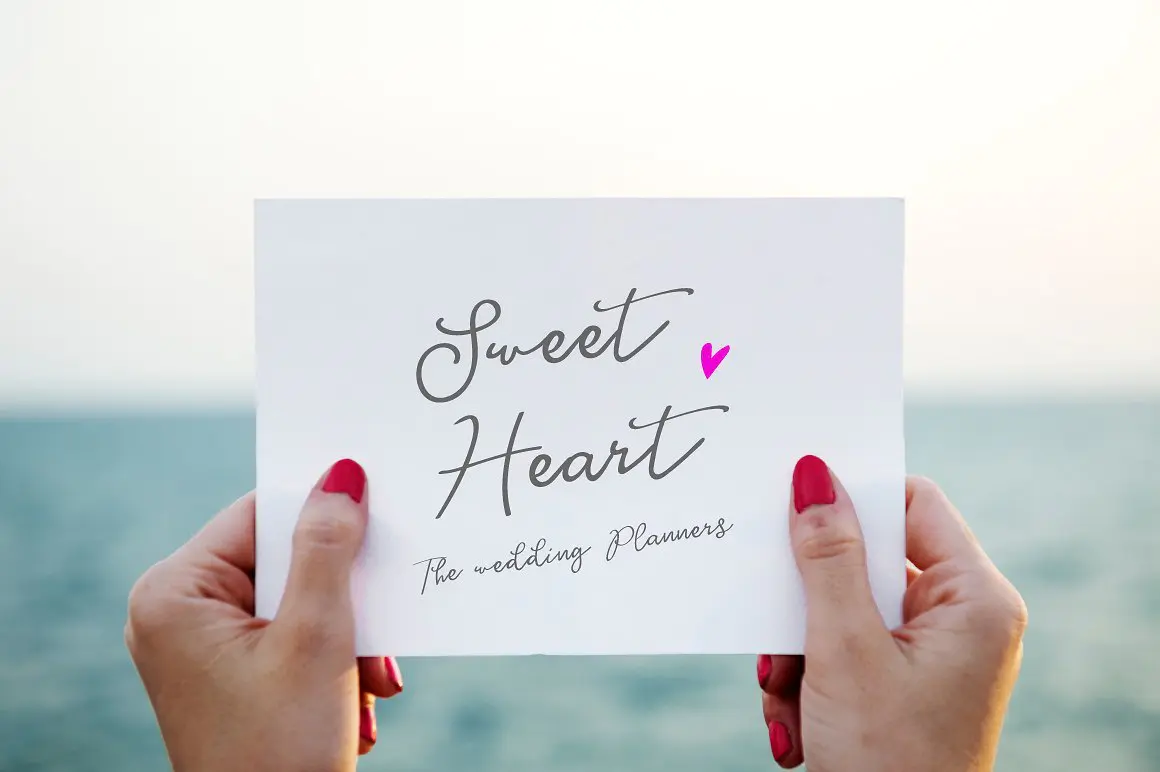 Sweet
Heart
The wedding Planners